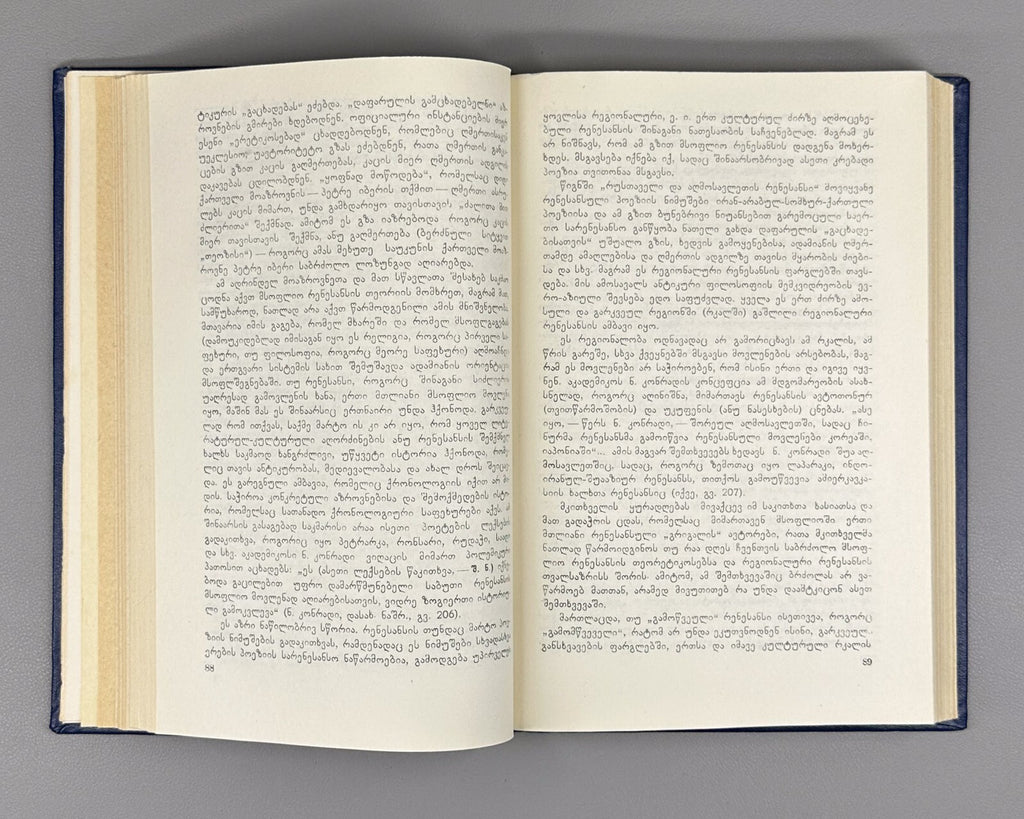 ტიკურის „გაცხადებას“ ეძებდა. „დაფარულის გამცხადებელნი“ აზ-
როვნების გმირები ხდებოდნენ. ოფიციალური ინსტანციების მიერ
ესენი „ერეტიკოსებად“ ცხადდებოდნენ, რომლებიც ღმერთისაკენ
უეკლესიო, უავტორიტეტო გზას ეძებდნენ, რათა ღმერთის განკა-
ცების გზით კაცის გაღმერთებას, კაცის მიერ ღმერთის ადგილის
დაკავებას ცდილობდნენ. „ყოფნად მოწოდება“, რომელსაც დიდი
ქართველი მოაზროვნის — პეტრე იბერის თქმით — ღმერთი ასრუ-
ლებს კაცის მიმართ, უნდა გამხდარიყო თავისთავის „ძალითა მით
ძლიერითა“ შექმნად. ამიტომ ეს გზა იაზრებოდა როგორც კაცის
მიერ თავისთავის შექმნა, ანუ გაღმერთება (ბერძნული სიტყვით
„თეოზისი“) — როგორც ამას მეხუთე საუკუნის ქართველი მოაზ-
როვნე პეტრე იბერი საბრძოლო ლოზუნგად აღიარებდა.
ამ ადრინდელ მოაზროვნეთა და მათ სწავლათა შესახებ საკმაო
ცოდნა აქვთ მსოფლიო რენესანსის თეორიის მომხრეთ, მაგრამ მათ,
სამწუხაროდ, ნათლად არა აქვთ წარმოდგენილი ამის მნიშვნელობა.
მთავარია იმის გაგება, რომელ მხარეში და რომელ მსოფლგაგებას
(დამოუკიდებლად იმისაგან იყო ეს რელიგია, როგორც პირველი სა-
ფეხური, თუ ფილოსოფია, როგორც მეორე საფეხური) აღმოაჩნდა
და ერთგვარი სისტემის სახით შემუშავდა ადამიანის ორიენტაცია
მსოფლშეგნებაში. თუ რენესანსი, როგორც შინაგანი სიძლიერის
უაღრესად გამოვლენის ხანა, ერთი მთლიანი მსოფლიო მოვლენა
იყო, მაშინ მას ეს შინაარსიც ერთნაირი უნდა ჰქონოდა. გარკვეუ-
ლად რომ ითქვას, საქმე მარტო ის კი არ იყო, რომ ყოველ ლიტე-
რატურულ-კულტურული აღორძინების ანუ რენესანსის შემქმნელ
ხალხს საკმაოდ ხანგრძლივი, უწყვეტი ისტორია ჰქონოდა, რომე-
ლიც თავის ანტიკურობას, მედიევალობასა და ახალ დროს შეიცავ-
და. ეს გარეგნული ამბავია, რომელიც ქრონოლოგიის იქით არ მი-
დის. საჭიროა კონკრეტული აზროვნებისა და შემოქმედების ისტო-
რია, რომელსაც სათანადო ქრონოლოგიური საფეხურები აქვს. ამ
შინაარსის გასაგებად საკმარისი არაა ისეთი პოეტების ლექსების
გადაკითხვა, როგორიც იყო პეტრარკა, რონსარი, რუდაქი, საადი
და სხვ. აკადემიკოსი ნ. კონრადი ვიღაცის მიმართ პოლემიკური
პათოსით აცხადებს: „ეს (ასეთი ლექსების წაკითხვა, — შ. ნ.) იქნე-
ბოდა გაცილებით უფრო დამარწმუნებელი საბუთი რენესანსის
მსოფლიო მოვლენად აღიარებისათვის, ვიდრე ზოგიერთი ისტორიუ-
ლი გამოკვლევა“ (ნ. კონრადი, დასახ. ნაშრ., გვ. 206).
ეს აზრი ნაწილობრივ სწორია. რენესანსის თუნდაც მარტო პოე-
ზიის ნიმუშების გადაკითხვას, რამდენადაც ეს ნიმუშები სხვადასხვა
ერების პოეზიის სარენესანსო ნაწარმოებია, გამოდგება უპირველეს
88
ყოვლისა რეგიონალური, ე. ი. ერთ კულტურულ ძირზე აღმოცენე-
ბული რენესანსის შინაგანი ნათესაობის საჩვენებლად. მაგრამ ეს
არ ნიშნავს, რომ ამ გზით მსოფლიო რენესანსის დადგენა მოხერ-
ხდეს. მსგავსება იქნება იქ, სადაც შინაარსობრივად ასეთი კრებადი
პოეზია თვითონაა მსგავსი.
წიგნში „რუსთაველი და აღმოსავლეთის რენესანსი“ მოვიყვანე
რენესანსული პოეზიის ნიმუშები ირან-არაბულ-სომხურ-ქართული
პოეზიისა და ამ გზით ბუნებრივი ნიუანსებით გარემოცული საერ-
თო სარენესანსო განწყობა ნათელი გახდა დაფარულის „გაცხადე-
ბისათვის“ უშუალო გზის, ხედვის გამოყენებისა, ადამიანის ღმერ-
თამდე ამაღლებისა და ღმერთის ადგილზე თავისი მყარობის ძიები-
სა და სხვ. მაგრამ ეს რეგიონალური რენესანსის ფარგლებში თავს-
დება. მის ამოსავალს ანტიკური ფილოსოფიის მემკვიდრეობის ევ-
რო-აზიული შევსება ედო საფუძვლად. ყველა ეს ერთ ძირზე ამო-
სული და გარკვეულ რეგიონში (რკალში) გაშლილი რეგიონალური
რენესანსის ამბავი იყო.
ეს რეგიონალობა ოდნავადაც არ გამორიცხავს ამ რკალის, ამ
წრის გარეშე, სხვა ქვეყნებში მსგავსი მოვლენების არსებობას, მაგ-
რამ ეს მოვლენები არ საჭიროებენ, რომ ისინი ერთი და იგივე იყვ-
ნენ. აკადემიკოს ნ. კონრადის კონცეფცია ამ მდგომარეობის ასახ-
სნელად, როგორც აღინიშნა, მიმართავს რენესანსის ავტოთონურ
(თვითწარმოშობის) და უკუფენის (ანუ ნასესხების) ცნებას. „ასე
იყო, — წერს ნ. კონრადი, — შორეულ აღმოსავლეთში, სადაც ჩი-
ნურმა რენესანსმა გამოიწვია რენესანსული მოვლენები კორეაში,
იაპონიაში“... ამის მაგვარ შემთხვევებს ხედავს ნ. კონრადი შუა აღ-
მოსავლეთშიც, სადაც, როგორც ზემოთაც იყო ლაპარაკი, ინდო-
ირანულ-შუააზიურ რენესანსს, თითქოს გამოუწვევია ამიერკავკა-
სიის ხალხთა რენესანსიც (იქვე, გვ. 207).
მკითხველის ყურადღებას მივაქცევ იმ საკითხთა ხასიათსა და
მათ გადაჭრის ცდას, რომელსაც მიმართავენ მსოფლიოში ერთი
მთლიანი რენესანსული „გრიგალის“ ავტორები, რათა მკითხველმა
ნათლად წარმოიდგინოს თუ რაა დღეს ჩვენთვის საბრძოლო მსოფ-
ლიო რენესანსის თეორეტიკოსებსა და რეგიონალური რენესანსის
თვალსაზრისს შორის ამიტომ, ამ შემთხვევაშიც ბრძოლას არ ვა-
წარმოებ მათთან, არამედ მივუთითებ რა უნდა დაამტკიცონ ასეთ
შემთხვევაში.
მართლაცდა, თუ „გამოწვეული“ რენესანსი ისეთივეა, როგორც
„გამომწვეველი“, რატომ არ უნდა ეკუთვნოდნენ ისინი, გარკვეულ.
განსხვავების ფარგლებში, ერთსა და იმავე კულტურული რკალის
89